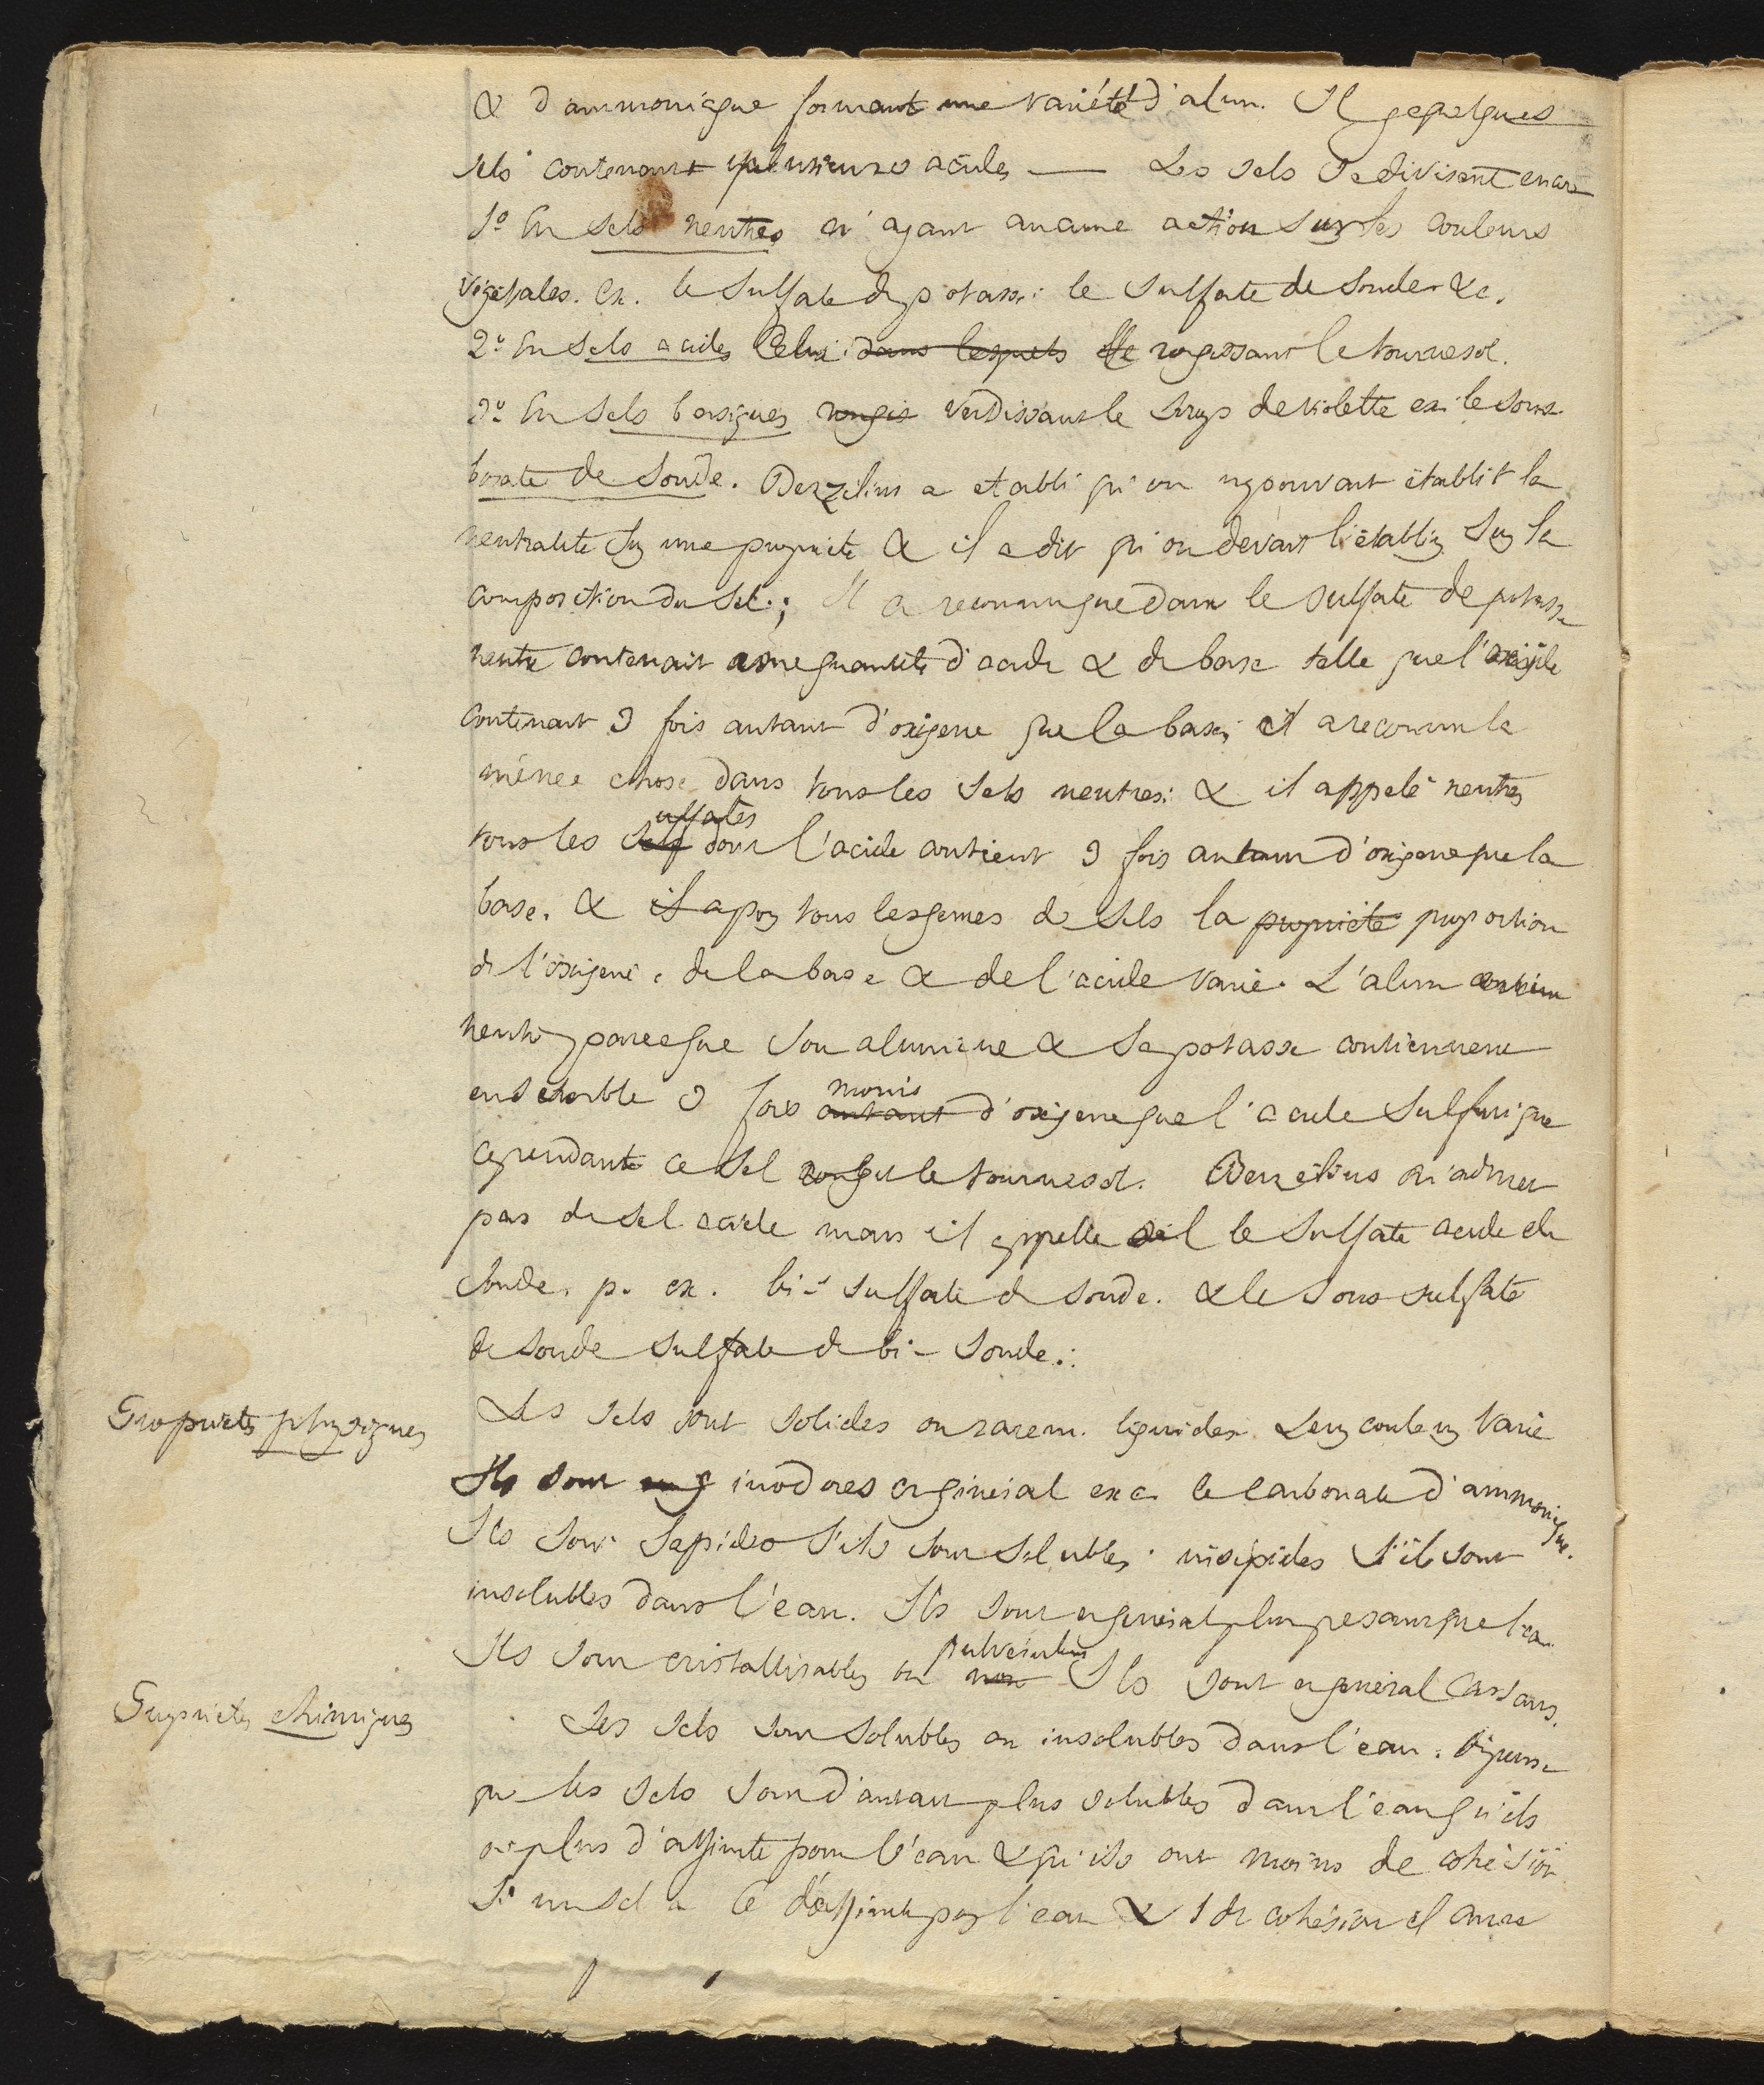 & d'ammoniaque formant une variété d'alun. Il y a quelques
sels contenant plusieurs acides — Les sels se divisent encore
1o En sels neutres n'ayant aucune action sur les couleurs
végétales. ex. le sulfate de potasse le sulfate de soude &c.
2o En sels acides Celui dans lesquels rougissant le tournesol.
3o En sels basiques rougis verdissant le sirop de violette ex. le sous
borate de soude. Berzelius a etabli qu'on ne pouvait établir la
neutralité sur une propriété & il a dit qu'on devait l'établir sur la
composition du sel.; Il a reconnu que dans le sulfate de potasse
neutre contenait une quantité d'acide & de base telle que l'acide
contenait 3 fois autant d'oxigene que la base, il a reconnu la
même chose dans tous les sels neutres: & il appelé neutres
ulfates
tous les sels dont l'acide contient 3 fois autant d'oxigene que la
base. & il a pour tous les genres de sels la propriété proportion
de l'oxigene de la base & de l'acide varie. L'alun
neutre parceque son alumine & sa potasse contiennent
moins
ensemble 3 fois autant d'oxigene que l'acide sulfurique
cependant ce sel rougit le tournesol. Berzelius n'admet
pas de sel acide mais il appelle le sulfate acide de
soude. p. ex. bi-sulfate de soude. & le sous sulfate
de soude sulfate de bi-soude.
Propriétés physiques
Les sels sont solides ou rarem. liquides. Leur couleur varie
Ils sont inodores en général exc. le carbonate d'ammoniaque.
Ils sont sapides s'ils sont solubles. insipides s'ils sont
insolubles dans l'eau. Ils sont en général plus pesants que l'eau
pulvérulens
Ils sont cristallisables ou non Ils sont en général cassans.
Propriétés chimiques
Les sels sont solubles ou insolubles dans l'eau.
que les sels sont d'autant plus solubles dans l'eau qu'ils
ont plus d'affinité pour l'eau & qu'ils ont moins de cohésion
Si un sel a 6 d'affinité pour l'eau & 1 de cohésion il aura